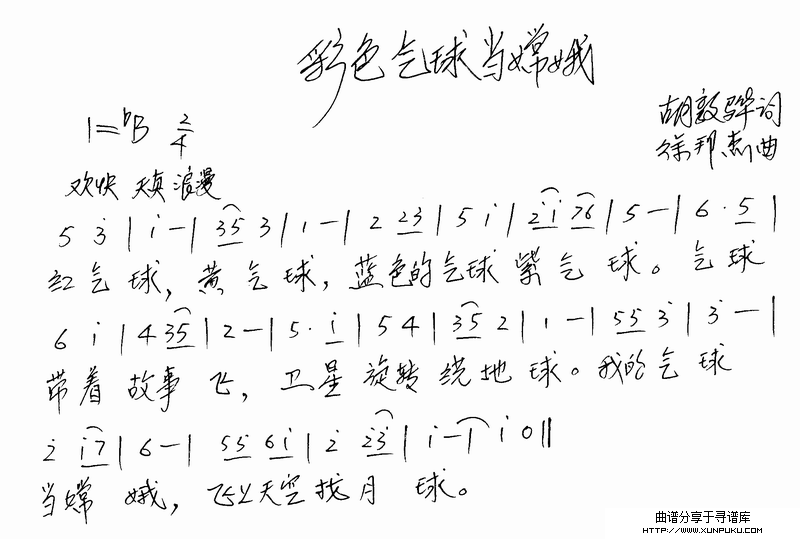 彩色气球当嫦娥
胡敦骅词
1=ᵇB 2/4
徐邦杰曲
欢快 天真 浪漫
5 3̇ | i - | 35 3 | 1 - | 2 23 | 5 i | 2̇i 76 | 5 - | 6 · 5 |
红气球，黄气球，蓝色的气球紫气球。气球
6 i | 4 35 | 2 - | 5 · i | 5 4 | 35 2 | 1 - | 55 3̇ | 3̇ - |
带着故事飞，卫星旋转绕地球。我的气球
2̇ i7 | 6 - | 55 6i | 2̇ 2̇3̇ | i - | i 0 ||
当嫦娥，飞上天空找月球。
曲谱分享于寻谱库
HTTP://WWW.XUNPUKU.COM